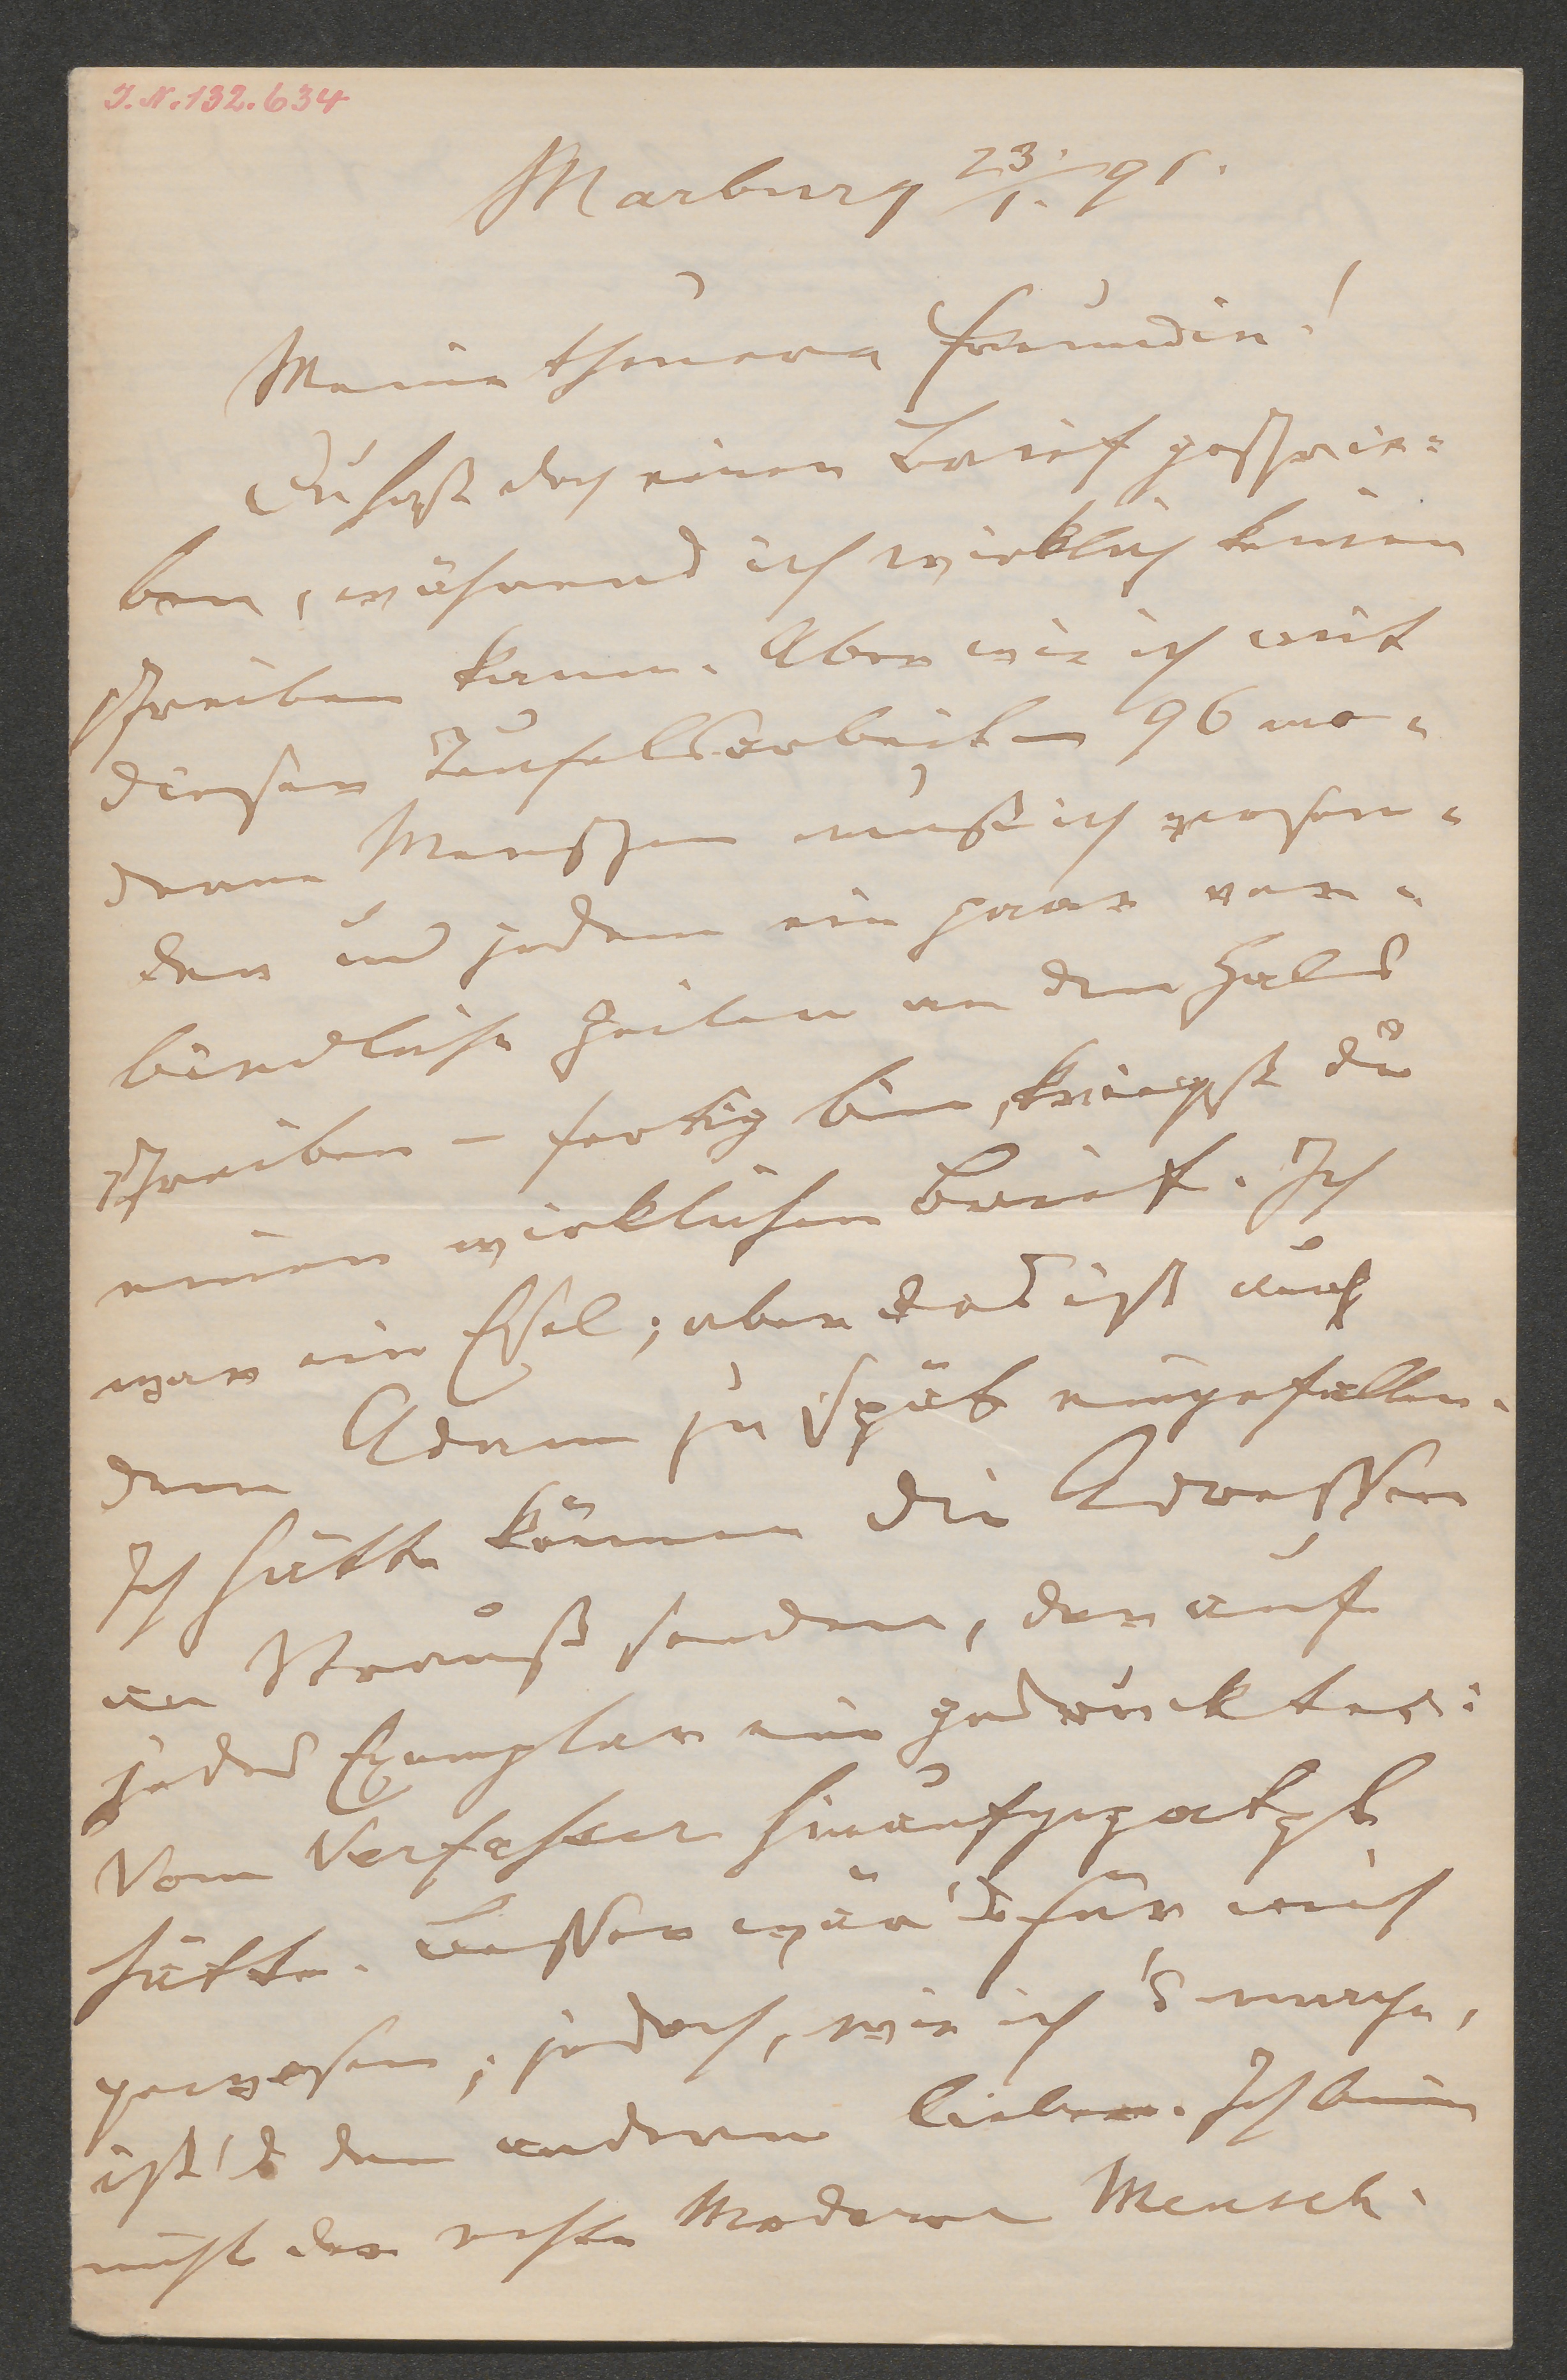 J.N. 132.634
Marburg 23./1. 91.
Meine theuere Freundin!
Du hast doch einen Brief geschrie-
ben, während ich wirklich keinen
schreiben kann. Aber wie ich mit
dieser Teufelsarbeit – 96 mo-
derne Menschen muß ich versen-
den und jedem ein paar ver-
bindliche Zeilen an den Hals
schreiben – fertig bin, kriegst du
einen wirklichen Brief. Ich
war ein Esel; aber das ist auch
dem Adam zu spät eingefallen.
Ich hätte können die Adressen
an Strauß senden, der auf
jedes Exemplar ein gedrucktes:
Vom Verfasser hinaufgepatzt
hätte. Besser wär's für mich
gewesen; jedoch, wie ich's mache,
ist's den andern lieber. Ich bin
nicht der echte Moderne Mensch.